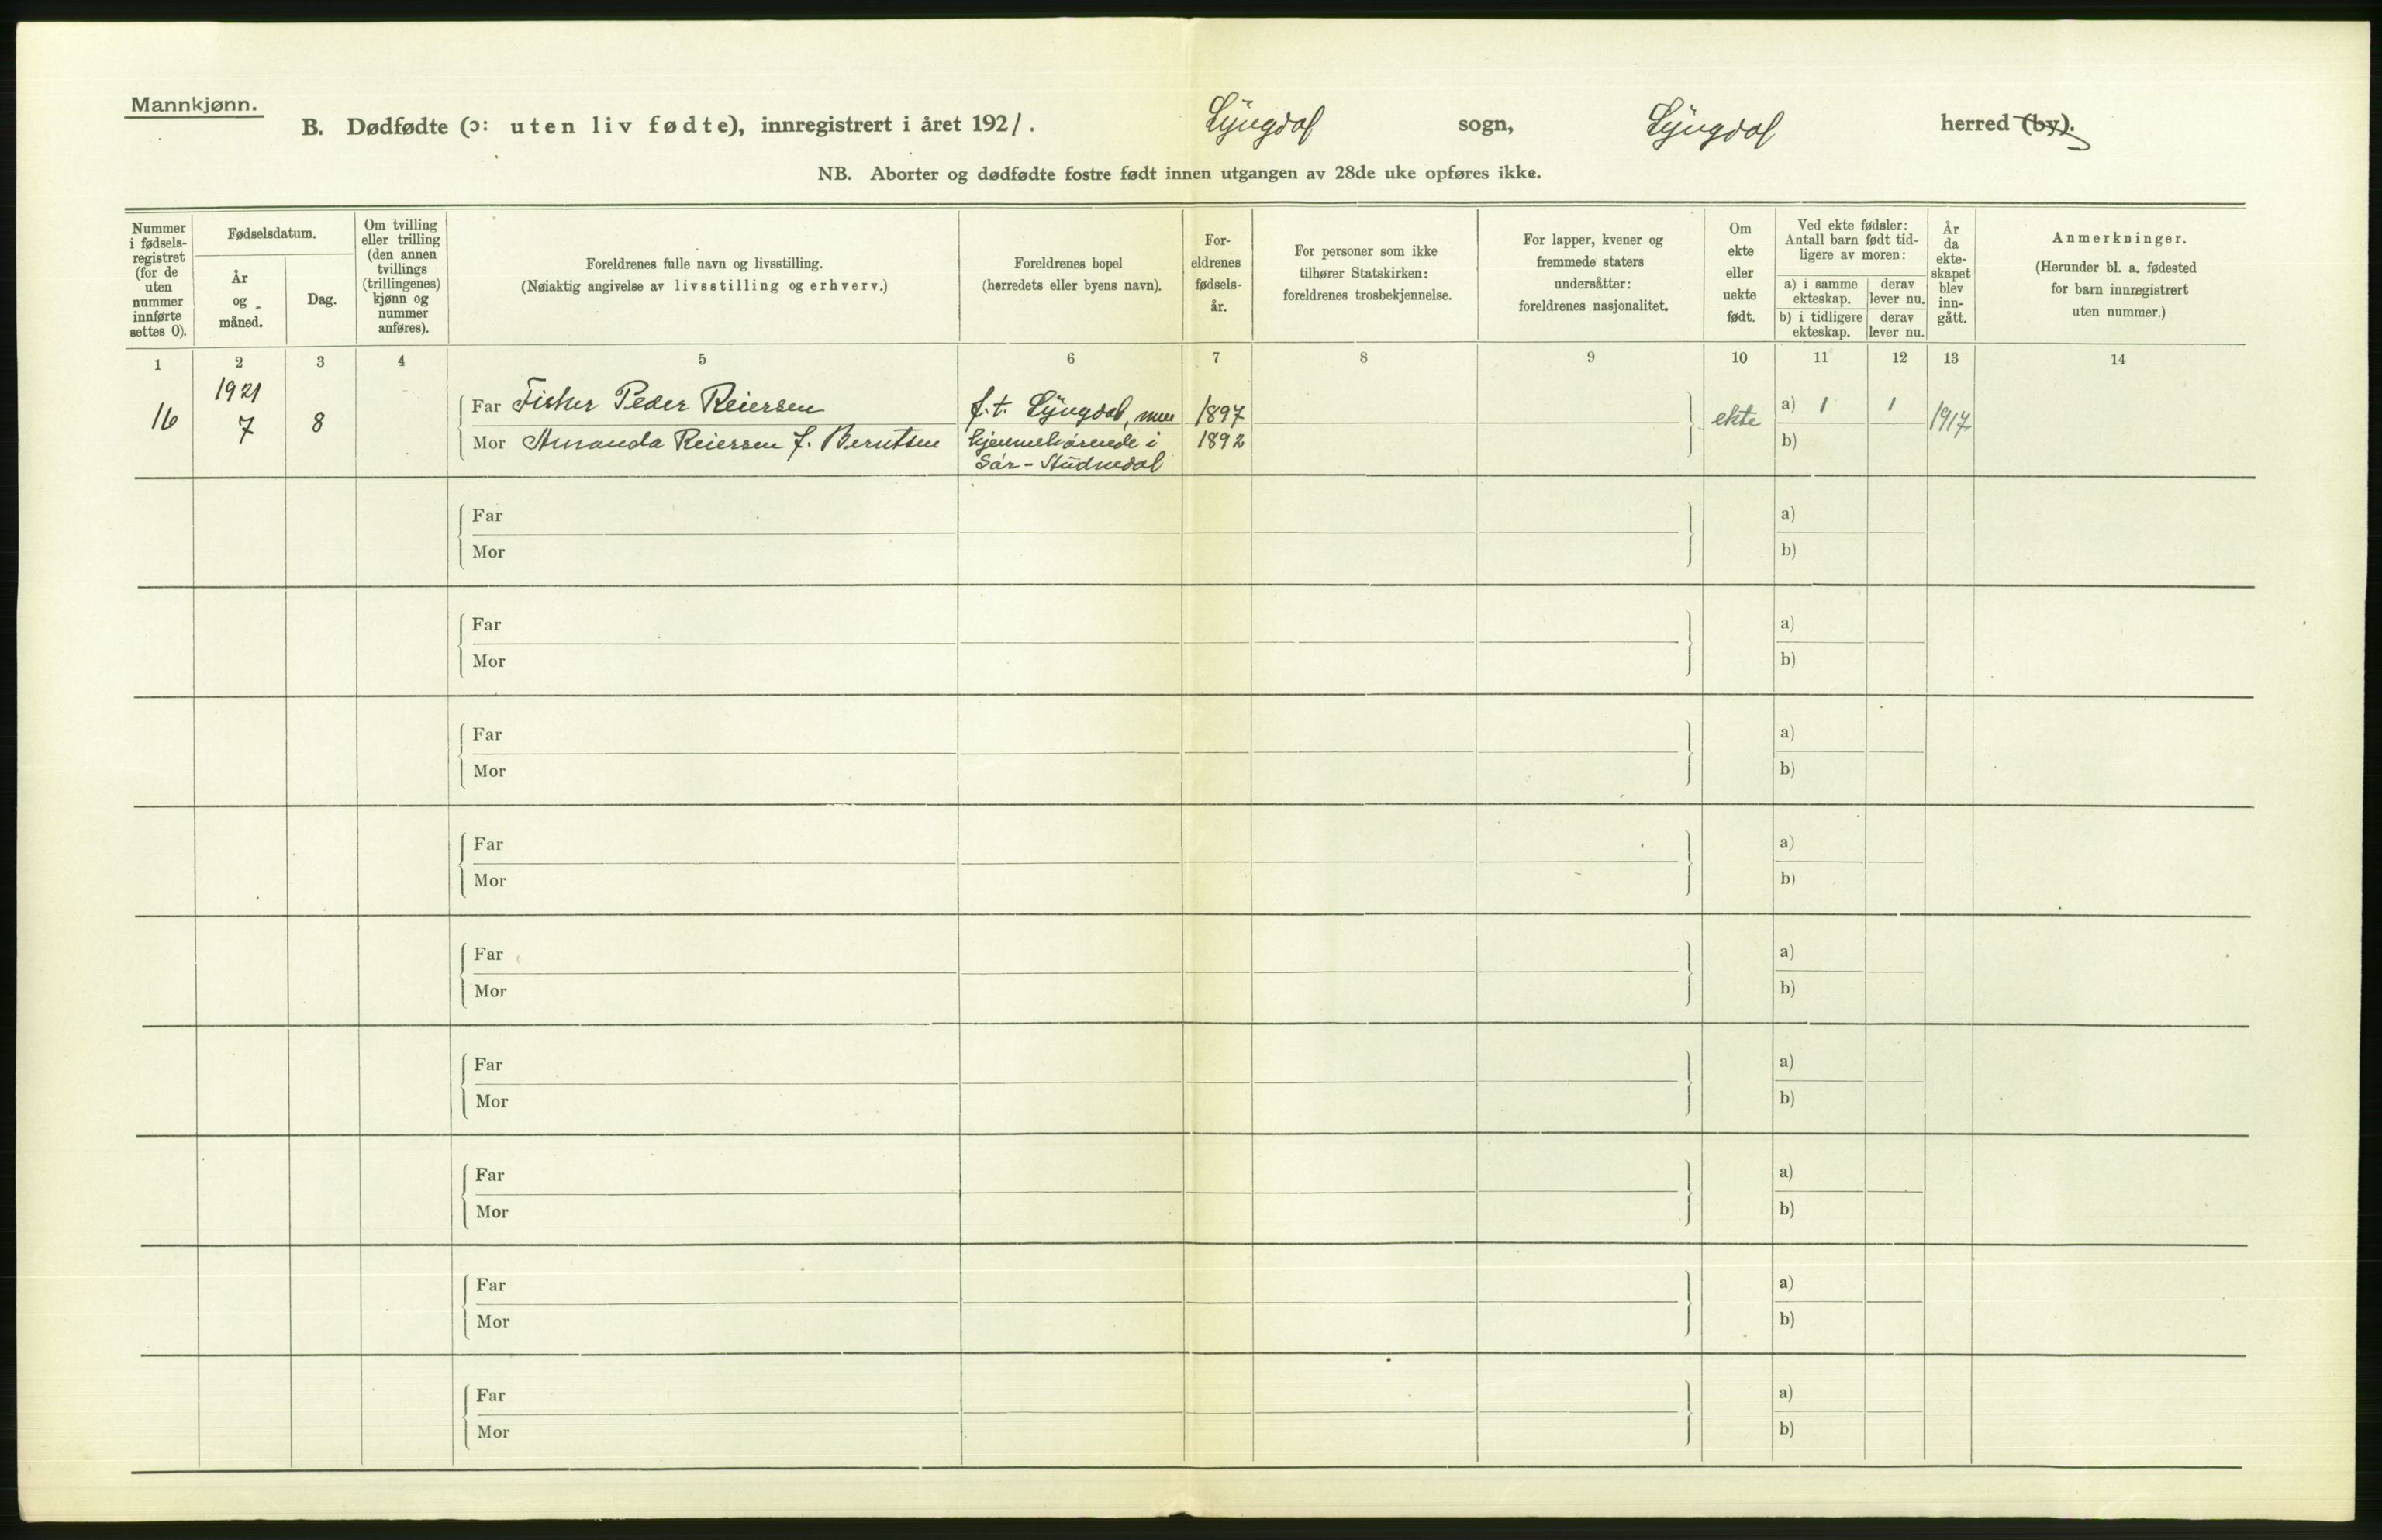 Mannkjønn.
B. Dødfødte (ɔ: uten liv fødte), innregistrert i året 1921. Lyngdal sogn, Lyngdal herred (by).
NB. Aborter og dødfødte fostre født innen utgangen av 28de uke opføres ikke.
Nummer i fødsels-registret (for de uten nummer innførte settes 0).
Fødselsdatum.
År og måned.
Dag.
Om tvilling eller trilling (den annen tvillings (trillingenes) kjønn og nummer anføres).
Foreldrenes fulle navn og livsstilling.
(Nøiaktig angivelse av livsstilling og erhverv.)
Foreldrenes bopel
(herredets eller byens navn).
For-eldrenes fødsels-år.
For personer som ikke tilhører Statskirken: foreldrenes trosbekjennelse.
For lapper, kvener og fremmede staters undersåtter: foreldrenes nasjonalitet.
Om ekte eller uekte født.
Ved ekte fødsler: Antall barn født tid-ligere av moren:
a) i samme ekteskap.
derav lever nu.
b) i tidligere ekteskap.
derav lever nu.
År da ekte-skapet blev inn-gått.
Anmerkninger.
(Herunder bl. a. fødested for barn innregistrert uten nummer.)
1 2 3 4 5 6 7 8 9 10 11 12 13 14
1921
16 7 8
Far Fisker Peder Reiersen f.t. Lyngdal, men 1897 ekte a) 1 1 1917
Mor Amanda Reiersen f. Berntsen hjemmehörende i 1892 b)
Sör-Audnedal
Far a)
Mor b)
Far a)
Mor b)
Far a)
Mor b)
Far a)
Mor b)
Far a)
Mor b)
Far a)
Mor b)
Far a)
Mor b)
Far a)
Mor b)
Far a)
Mor b)